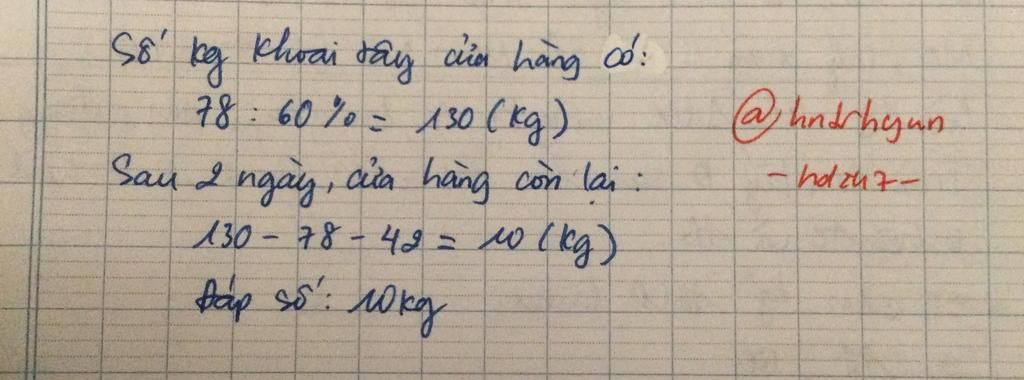 Số kg khoai tây cửa hàng có:
78 : 60% = 130 (kg)
Sau 2 ngày, cửa hàng còn lại:
130 - 78 - 42 = 10 (kg)
Đáp số: 10kg
@hndrhgun
- hdzu7 -